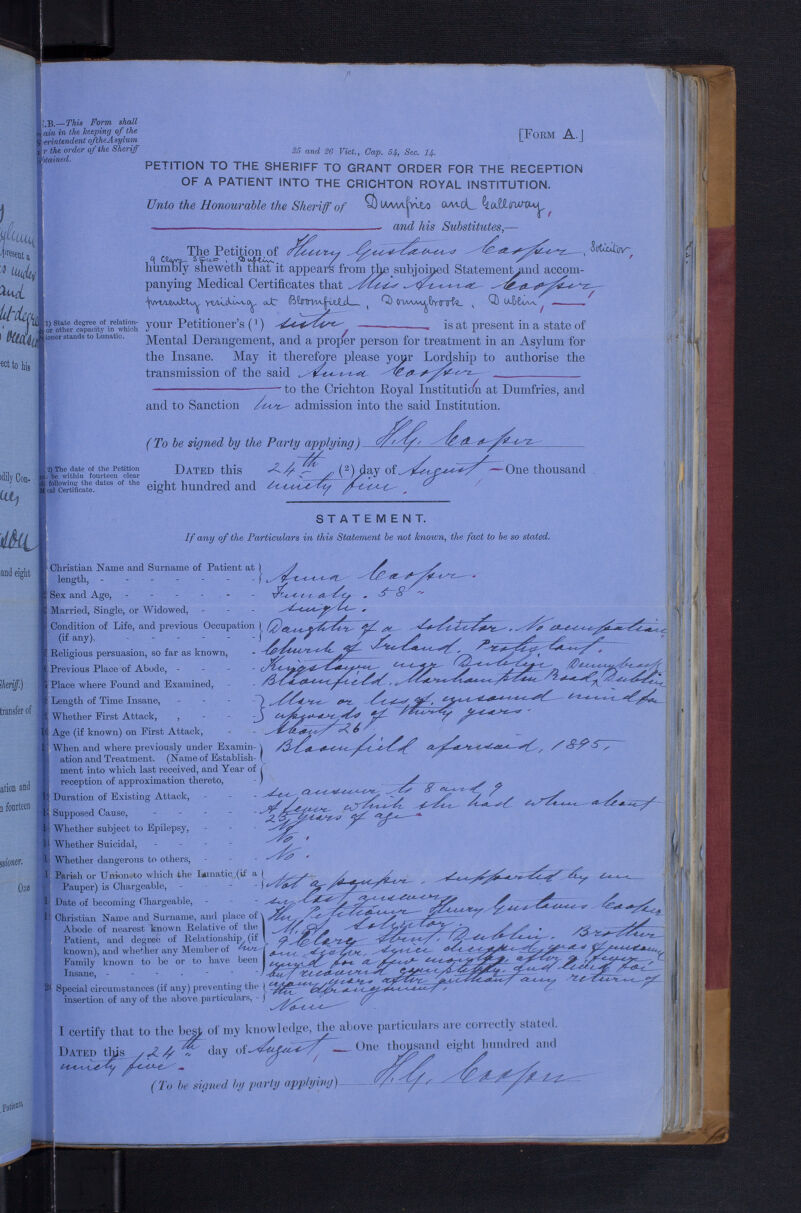 N.B.—This Form shall
ain in the keeping of the
erintendent of the Asylum
r the order of the Sheriff
btained.
[FORM A.]
25 and 26 Vict., Cap. 54, Sec. 14.
PETITION TO THE SHERIFF TO GRANT ORDER FOR THE RECEPTION
OF A PATIENT INTO THE CRICHTON ROYAL INSTITUTION.
Unto the Honourable the Sheriff of Dumfries and Galloway,
and his Substitutes,—
The Petition of Henry Gustavus Cooper, Solicitor,
9 Clare Dublin
humbly sheweth that it appears from the subjoined Statement and accom-
panying Medical Certificates that Miss Anna Cooper,
presently residing at Bloomfield, Donnybrook, Dublin,
(1) State degree of relation-
or other capacity in which
ioner stands to Lunatic.
your Petitioner's (1) sister, is at present in a state of
Mental Derangement, and a proper person for treatment in an Asylum for
the Insane. May it therefore please your Lordship to authorise the
transmission of the said Anna Cooper
to the Crichton Royal Institution at Dumfries, and
and to Sanction her admission into the said Institution.
(To be signed by the Party applying) H.G. Cooper
(2) The date of the Petition
be within fourteen clear
following the dates of the
cal Certificate.
DATED this 24th (2) day of August — One thousand
eight hundred and ninety five.
STATEMENT.
If any of the Particulars in this Statement be not known, the fact to be so stated.
Christian Name and Surname of Patient at
length, - Anna Cooper.
Sex and Age, - Female. 58
Married, Single, or Widowed, - Single.
Condition of Life, and previous Occupation
(if any). Daughter of a Solicitor. No occupation
Religious persuasion, so far as known, - Church of Ireland. Protestant.
Previous Place of Abode, - Kingstown near Dublin
Place where Found and Examined, - Bloomfield. Morehampton Road, Donnybrook Dublin
Length of Time Insane, - More or less of unsound mind for
Whether First Attack, - upwards of thirty years.
Age (if known) on First Attack, - About 26
When and where previously under Examin-
ation and Treatment. (Name of Establish-
ment into which last received, and Year of
reception of approximation thereto, - Bloomfield aforesaid, 1895.
Duration of Existing Attack, - See answer to 8 and 9
Supposed Cause, - A fever which she had when about
25 years of age
Whether subject to Epilepsy, - No
Whether Suicidal, - No.
Whether dangerous to others, - No.
Parish or Union to which the Lunatic (if a
Pauper) is Chargeable, - Not a pauper. Supported by me
Date of becoming Chargeable, - See last answer
Christian Name and Surname, and place of
Abode of nearest known Relative of the
Patient, and degree of Relationship (if
known), and whether any Member of her
Family known to be or to have been
Insane, -
The Petitioner Henry Gustavus Cooper
Solicitor
9 Clare Street, Dublin. Brother
one sister since deceased was of unsound
mind for a few months after a fever,
but recovered completely and lived for
many years after without any return of
the derangement.
Special circumstances (if any) preventing the
insertion of any of the above particulars, - None
I certify that to the best of my knowledge, the above particulars are correctly stated.
DATED this 24th day of August, — One thousand eight hundred and
ninety five.
(To be signed by party applying) H.G. Cooper